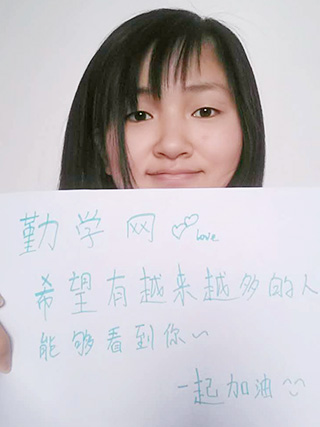 勤学网 love
希望有越来越多的人
能够看到你~
一起加油